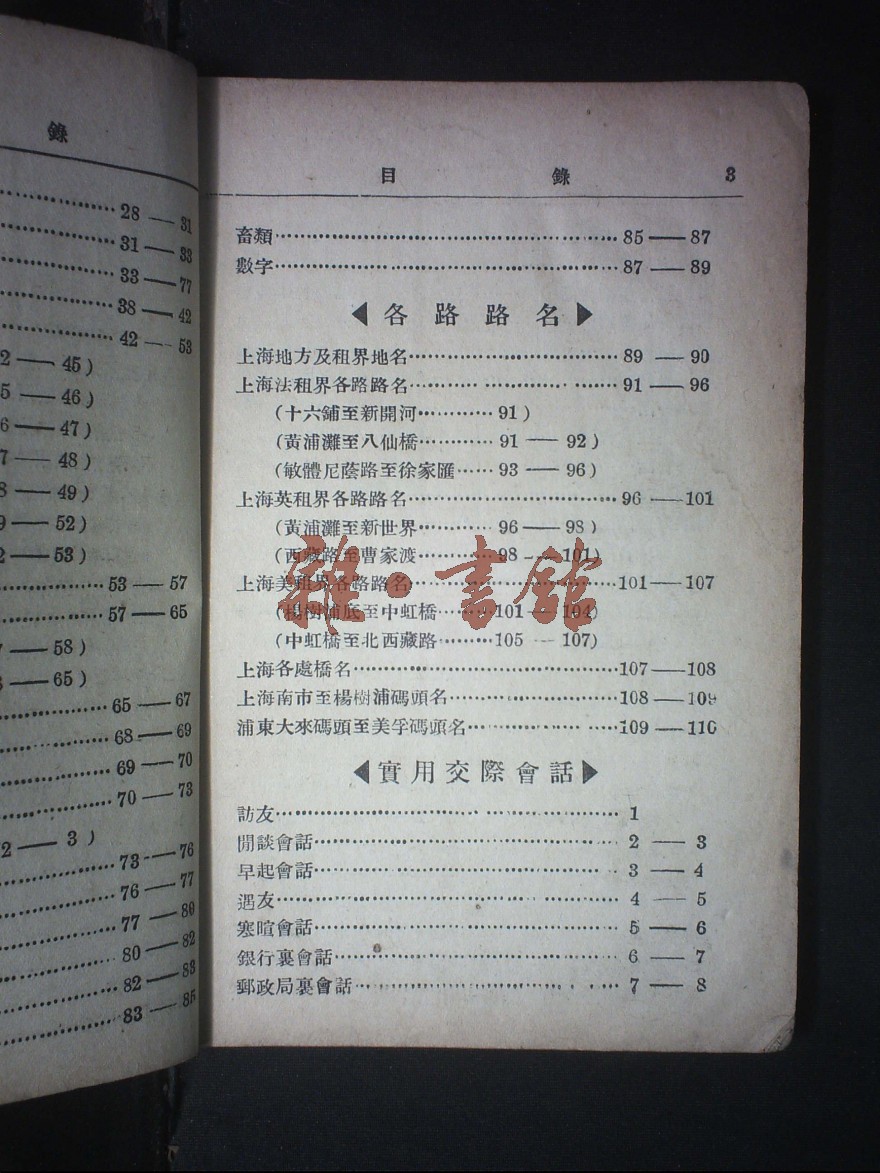 錄
28 — 31
31 — 33
33 — 77
38 — 42
42 — 53
2 — 45)
5 — 46)
6 — 47)
7 — 48)
8 — 49)
9 — 52)
2 — 53)
53 — 57
57 — 65
7 — 58)
8 — 65)
65 — 67
68 — 69
69 — 70
70 — 73
2 — 3)
73 — 76
76 — 77
77 — 80
80 — 82
82 — 83
83 — 85
目 錄 3
畜類 85 — 87
數字 87 — 89
◀各路路名▶
上海地方及租界地名 89 — 90
上海法租界各路路名 91 — 96
(十六鋪至新開河 91)
(黃浦灘至八仙橋 91 — 92)
(敏體尼蔭路至徐家匯 93 — 96)
上海英租界各路路名 96 — 101
(黃浦灘至新世界 96 — 98)
(西藏路至曹家渡 98 — 101)
上海美租界各路路名 101 — 107
(楊樹浦底至中虹橋 101 — 104)
(中虹橋至北西藏路 105 — 107)
上海各處橋名 107 — 108
上海南市至楊樹浦碼頭名 108 — 109
浦東大來碼頭至美孚碼頭名 109 — 110
◀實用交際會話▶
訪友 1
閒談會話 2 — 3
早起會話 3 — 4
遇友 4 — 5
寒暄會話 5 — 6
銀行裏會話 6 — 7
郵政局裏會話 7 — 8
雜·書館